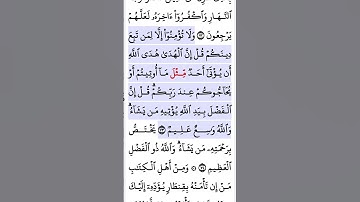 ٱلنَّهَارِ وَٱكْفُرُوٓا۟ ءَاخِرَهُۥ لَعَلَّهُمْ
يَرْجِعُونَ ٧٢ وَلَا تُؤْمِنُوٓا۟ إِلَّا لِمَن تَبِعَ
دِينَكُمْ قُلْ إِنَّ ٱلْهُدَىٰ هُدَى ٱللَّهِ
أَن يُؤْتَىٰٓ أَحَدٌ مِّثْلَ مَآ أُوتِيتُمْ أَوْ
يُحَآجُّوكُمْ عِندَ رَبِّكُمْ قُلْ إِنَّ
ٱلْفَضْلَ بِيَدِ ٱللَّهِ يُؤْتِيهِ مَن يَشَآءُ
وَٱللَّهُ وَٰسِعٌ عَلِيمٌ ٧٣ يَخْتَصُّ
بِرَحْمَتِهِۦ مَن يَشَآءُ وَٱللَّهُ ذُو ٱلْفَضْلِ
ٱلْعَظِيمِ ٧٤ وَمِنْ أَهْلِ ٱلْكِتَٰبِ
مَنْ إِن تَأْمَنْهُ بِقِنطَارٍ يُؤَدِّهِۦٓ إِلَيْكَ